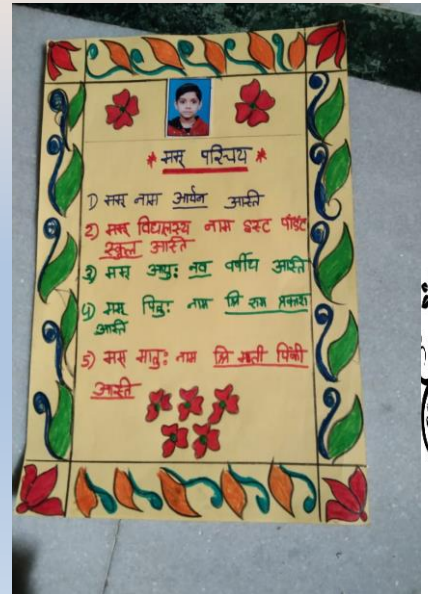 * मस् परिचय *
1) मस् नाम आर्यन आस्ते
2) मस् विद्यालस्य नाम इस्ट पॉइंट
स्कुल आस्ते
3) मस् आयु: नव वर्षीय आस्ते
4) मस् पितु: नाम श्रि राम प्रकाश
आस्ते
5) मस् मातु: नाम श्रि मती पिंकी
आस्ते